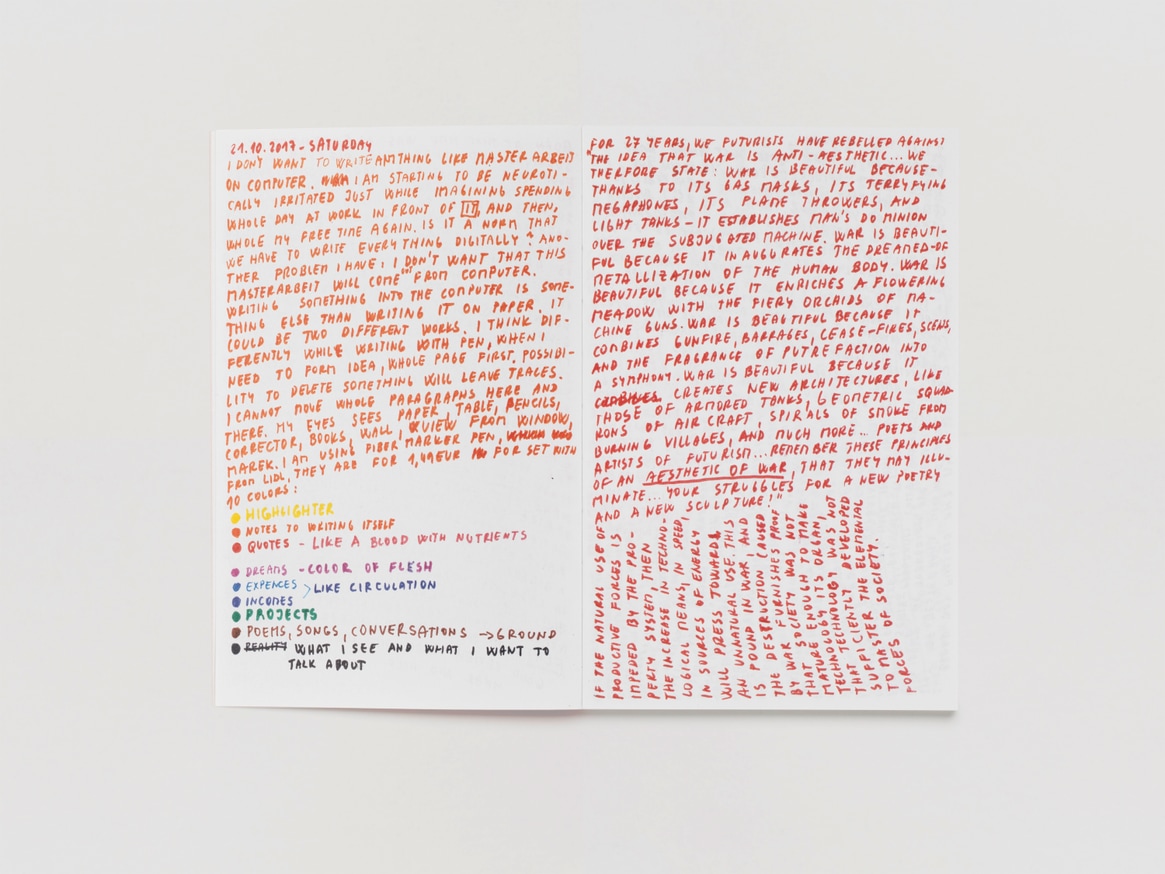 21.10.2017 - SATURDAY
I DON'T WANT TO WRITE ANYTHING LIKE MASTER ARBEIT
ON COMPUTER. I AM STARTING TO BE NEUROTI-
CALLY IRRITATED JUST WHILE IMAGINING SPENDING
WHOLE DAY AT WORK IN FRONT OF IT, AND THEN,
WHOLE MY FREE TIME AGAIN. IS IT A NORM THAT
WE HAVE TO WRITE EVERYTHING DIGITALLY? ANO-
THER PROBLEM I HAVE: I DON'T WANT THAT THIS
MASTERARBEIT WILL COME "FROM COMPUTER.
WRITING SOMETHING INTO THE COMPUTER IS SOME-
THING ELSE THAN WRITING IT ON PAPER. IT
COULD BE TWO DIFFERENT WORKS. I THINK DIF-
FERENTLY WHILE WRITING WITH PEN, WHEN I
NEED TO FORM IDEA, WHOLE PAGE FIRST. POSSIBI-
LITY TO DELETE SOMETHING WILL LEAVE TRACES.
I CANNOT MOVE WHOLE PARAGRAPHS HERE AND
THERE. MY EYES SEES PAPER, TABLE, PENCILS,
CORRECTOR, BOOKS, WALL, VIEW FROM WINDOW,
MAREK. I AM USING FIBER MARKER PEN,
FROM LIDL, THEY ARE FOR 1,49EUR FOR SET WITH
10 COLORS:
HIGHLIGHTER
NOTES TO WRITING ITSELF
QUOTES - LIKE A BLOOD WITH NUTRIENTS
DREAMS - COLOR OF FLESH
EXPENCES > LIKE CIRCULATION
INCOMES
PROJECTS
POEMS, SONGS, CONVERSATIONS → GROUND
REALITY WHAT I SEE AND WHAT I WANT TO
TALK ABOUT
FOR 27 YEARS, WE FUTURISTS HAVE REBELLED AGAINST
"THE IDEA THAT WAR IS ANTI-AESTHETIC... WE
THERFORE STATE: WAR IS BEAUTIFUL BECAUSE-
THANKS TO ITS GAS MASKS, ITS TERRYFYING
MEGAPHONES, ITS FLAME THROWERS, AND
LIGHT TANKS - IT ESTABLISHES MAN'S DOMINION
OVER THE SUBJUGATED MACHINE. WAR IS BEAUTI-
FUL BECAUSE IT INAUGURATES THE DREAMED-OF
METALLIZATION OF THE HUMAN BODY. WAR IS
BEAUTIFUL BECAUSE IT ENRICHES A FLOWERING
MEADOW WITH THE FIERY ORCHIDS OF MA-
CHINE GUNS. WAR IS BEAUTIFUL BECAUSE IT
COMBINES GUNFIRE, BARRAGES, CEASE-FIRES, SCENS,
AND THE FRAGRANCE OF PUTREFACTION INTO
A SYMPHONY. WAR IS BEAUTIFUL BECAUSE IT
CREATES NEW ARCHITECTURES, LIKE
THOSE OF ARMORED TANKS, GEOMETRIC SQUAD-
RONS OF AIR CRAFT, SPIRALS OF SMOKE FROM
BURNING VILLAGES, AND MUCH MORE... POETS AND
ARTISTS OF FUTURISM... REMEMBER THESE PRINCIPLES
OF AN AESTHETIC OF WAR, THAT THEY MAY ILLU-
MINATE... YOUR STRUGGLES FOR A NEW POETRY
AND A NEW SCULPTURE!"
IF THE NATURAL USE OF
PRODUCTIVE FORCES IS
IMPEDED BY THE PRO-
PERTY SYSTEM, THEN
THE INCREASE IN TECHNO-
LOGICAL MEANS, IN SPEED,
IN SOURCES OF ENERGY
WILL PRESS TOWARDS
AN UNNATURAL USE. THIS
IS FOUND IN WAR, AND
THE DESTRUCTION CAUSED
BY WAR FURNISHES PROOF
THAT SOCIETY WAS NOT
MATURE ENOUGH TO MAKE
TECHNOLOGY ITS ORGAN,
THAT TECHNOLOGY WAS NOT
SUFFICIENTLY DEVELOPED
TO MASTER THE ELEMENTAL
FORCES OF SOCIETY.